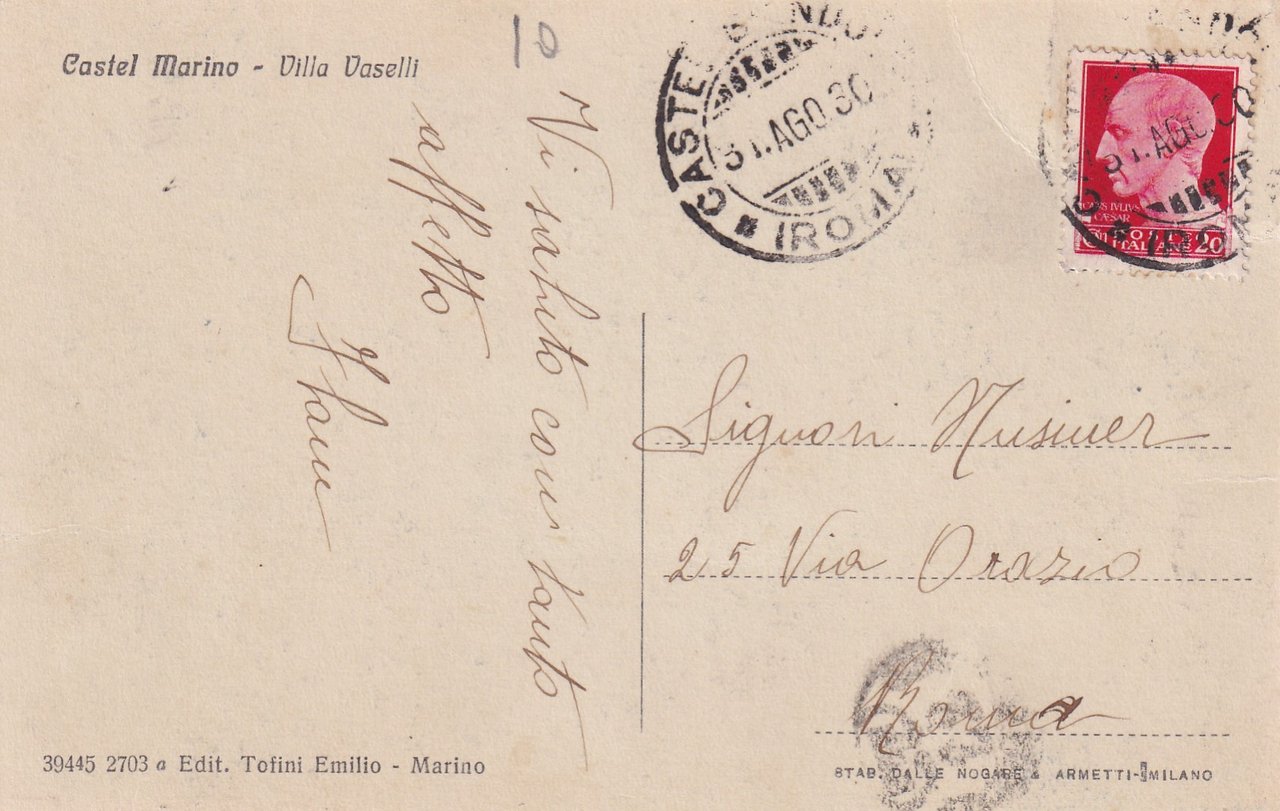 Castel Marino - Villa Vaselli
10
Vi saluto con tanto
affetto
CASTEL GANDOLFO
31.AGO.30
(ROMA)
IVLIVS
CAESAR
POSTE
Cmi ITALIANE 20
Signori
25 Via Orazio
Roma
39445 2703 a Edit. Tofini Emilio - Marino
STAB. DALLE NOGARE & ARMETTI - MILANO